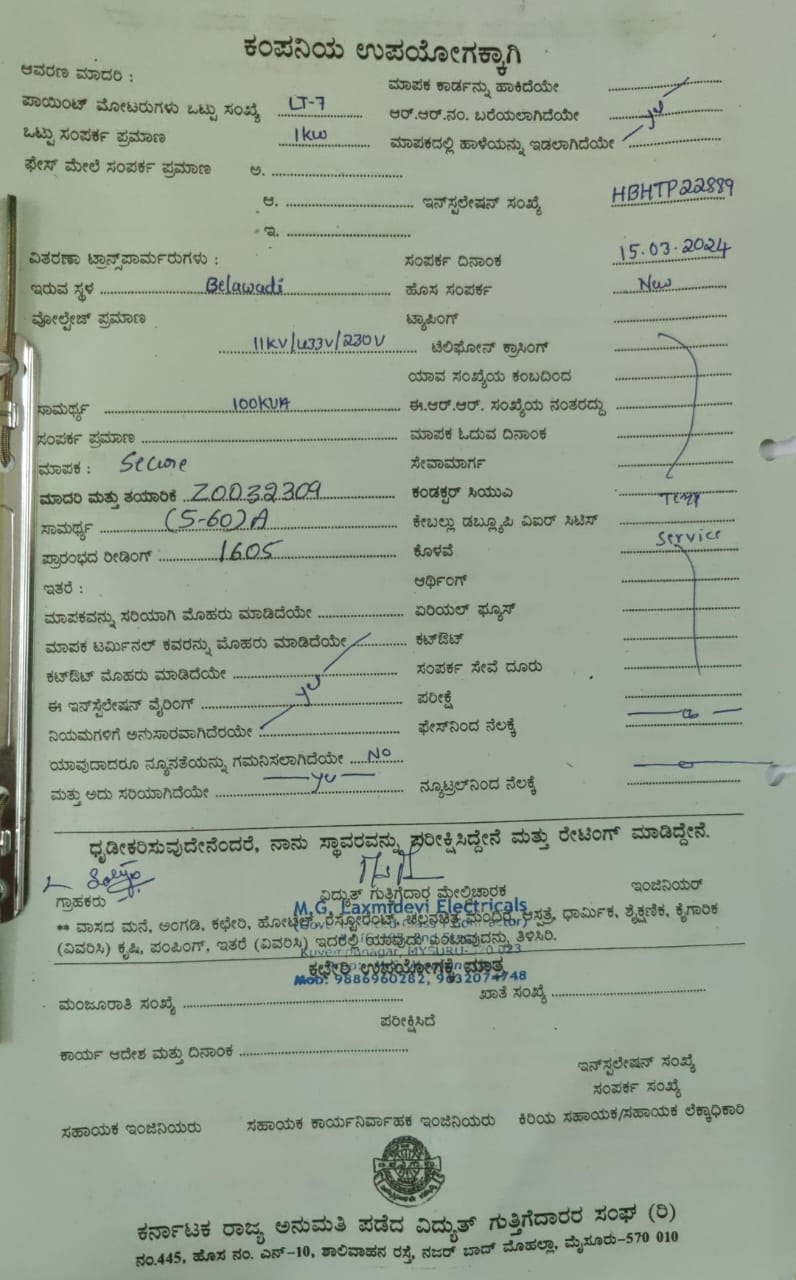 ಕಂಪನಿಯ ಉಪಯೋಗಕ್ಕಾಗಿ
ಆವರಣ ಮಾದರಿ : ಮಾಪಕ ಕಾರ್ಡನ್ನು ಹಾಕಿದೆಯೇ
ಪಾಯಿಂಟ್ ಮೋಟರುಗಳು ಒಟ್ಟು ಸಂಖ್ಯೆ LT-7 ಆರ್.ಆರ್.ನಂ. ಬರೆಯಲಾಗಿದೆಯೇ
ಒಟ್ಟು ಸಂಪರ್ಕ ಪ್ರಮಾಣ 1kw ಮಾಪಕದಲ್ಲಿ ಹಾಳೆಯನ್ನು ಇಡಲಾಗಿದೆಯೇ
ಫೇಸ್ ಮೇಲೆ ಸಂಪರ್ಕ ಪ್ರಮಾಣ ಅ.
ಆ. ಇನ್‌ಸ್ಟಲೇಷನ್ ಸಂಖ್ಯೆ HBHTP22889
ಇ.
ವಿತರಣಾ ಟ್ರಾನ್ಸ್‌ಫಾರ್ಮರುಗಳು : ಸಂಪರ್ಕ ದಿನಾಂಕ 15.03.2024
ಇರುವ ಸ್ಥಳ Belawadi ಹೊಸ ಸಂಪರ್ಕ New
ವೋಲ್ಟೇಜ್ ಪ್ರಮಾಣ ಟ್ಯಾಪಿಂಗ್
11KV/433V/230V ಟೆಲಿಫೋನ್ ಕ್ರಾಸಿಂಗ್
ಯಾವ ಸಂಖ್ಯೆಯ ಕಂಬದಿಂದ
ಸಾಮರ್ಥ್ಯ 100KVA ಈ.ಆರ್.ಆರ್. ಸಂಖ್ಯೆಯ ನಂತರದ್ದು
ಸಂಪರ್ಕ ಪ್ರಮಾಣ ಮಾಪಕ ಓದುವ ದಿನಾಂಕ
ಮಾಪಕ : Secure ಸೇವಾಮಾರ್ಗ
ಮಾದರಿ ಮತ್ತು ತಯಾರಿಕೆ Z0032309 ಕಂಡಕ್ಟರ್ ಸಿಯುಎ Temp
ಸಾಮರ್ಥ್ಯ (5-60)A ಕೇಬಲ್ಲು ಡಬ್ಲ್ಯೂಪಿ ವಿಐರ್ ಸಿಟಿಸ್
ಪ್ರಾರಂಭದ ರೀಡಿಂಗ್ 1605 ಕೊಳವೆ Service
ಇತರೆ : ಆರ್ಥಿಂಗ್
ಮಾಪಕವನ್ನು ಸರಿಯಾಗಿ ಮೊಹರು ಮಾಡಿದೆಯೇ ಏರಿಯಲ್ ಫ್ಯೂಸ್
ಮಾಪಕ ಟರ್ಮಿನಲ್ ಕವರನ್ನು ಮೊಹರು ಮಾಡಿದೆಯೇ ಕಟ್‌ಔಟ್
ಕಟ್‌ಔಟ್ ಮೊಹರು ಮಾಡಿದೆಯೇ ಸಂಪರ್ಕ ಸೇವೆ ದೂರು
ಈ ಇನ್‌ಸ್ಟಲೇಷನ್ ವೈರಿಂಗ್ ಪರೀಕ್ಷೆ
ನಿಯಮಗಳಿಗೆ ಅನುಸಾರವಾಗಿದೆರಯೇ ಫೇಸ್‌ನಿಂದ ನೆಲಕ್ಕೆ
ಯಾವುದಾದರೂ ನ್ಯೂನತೆಯನ್ನು ಗಮನಿಸಲಾಗಿದೆಯೇ No
ಮತ್ತು ಅದು ಸರಿಯಾಗಿದೆಯೇ ನ್ಯೂಟ್ರಲ್‌ನಿಂದ ನೆಲಕ್ಕೆ
ಧೃಡೀಕರಿಸುವುದೇನೆಂದರೆ, ನಾನು ಸ್ಥಾವರವನ್ನು ಪರೀಕ್ಷಿಸಿದ್ದೇನೆ ಮತ್ತು ರೇಟಿಂಗ್ ಮಾಡಿದ್ದೇನೆ.
ಗ್ರಾಹಕರು ವಿದ್ಯುತ್ ಗುತ್ತಿಗೆದಾರ ಮೇಲ್ವಿಚಾರಕ ಇಂಜಿನಿಯರ್
M.G. Laxmidevi Electricals
** ವಾಸದ ಮನೆ, ಅಂಗಡಿ, ಕಛೇರಿ, ಹೋಟೆಲ್, ರೆಸ್ಟೋರೆಂಟ್, ಚಲನಚಿತ್ರ ಮಂದಿರ, ಆಸ್ಪತ್ರೆ, ಧಾರ್ಮಿಕ, ಶೈಕ್ಷಣಿಕ, ಕೈಗಾರಿಕ
(ವಿವರಿಸಿ) ಕೃಷಿ, ಪಂಪಿಂಗ್, ಇತರೆ (ವಿವರಿಸಿ) ಇದರಲ್ಲಿ ಯಾವುದು ಎಂಬುವುದನ್ನು ತಿಳಿಸಿರಿ.
ಕಛೇರಿ ಉಪಯೋಗಕ್ಕೆ ಮಾತ್ರ
Mob: 9886960282,
ಮಂಜೂರಾತಿ ಸಂಖ್ಯೆ ಖಾತೆ ಸಂಖ್ಯೆ
ಪರೀಕ್ಷಿಸಿದೆ
ಕಾರ್ಯ ಆದೇಶ ಮತ್ತು ದಿನಾಂಕ
ಇನ್‌ಸ್ಟಲೇಷನ್ ಸಂಖ್ಯೆ
ಸಂಪರ್ಕ ಸಂಖ್ಯೆ
ಸಹಾಯಕ ಇಂಜಿನಿಯರು ಸಹಾಯಕ ಕಾರ್ಯನಿರ್ವಾಹಕ ಇಂಜಿನಿಯರು ಕಿರಿಯ ಸಹಾಯಕ/ಸಹಾಯಕ ಲೆಕ್ಕಾಧಿಕಾರಿ
ಕರ್ನಾಟಕ ರಾಜ್ಯ ಅನುಮತಿ ಪಡೆದ ವಿದ್ಯುತ್ ಗುತ್ತಿಗೆದಾರರ ಸಂಘ (ರಿ)
ನಂ.445, ಹೊಸ ನಂ. ಎನ್-10, ಶಾಲಿವಾಹನ ರಸ್ತೆ, ನಜರ್ ಬಾದ್ ಮೊಹಲ್ಲಾ, ಮೈಸೂರು-570 010